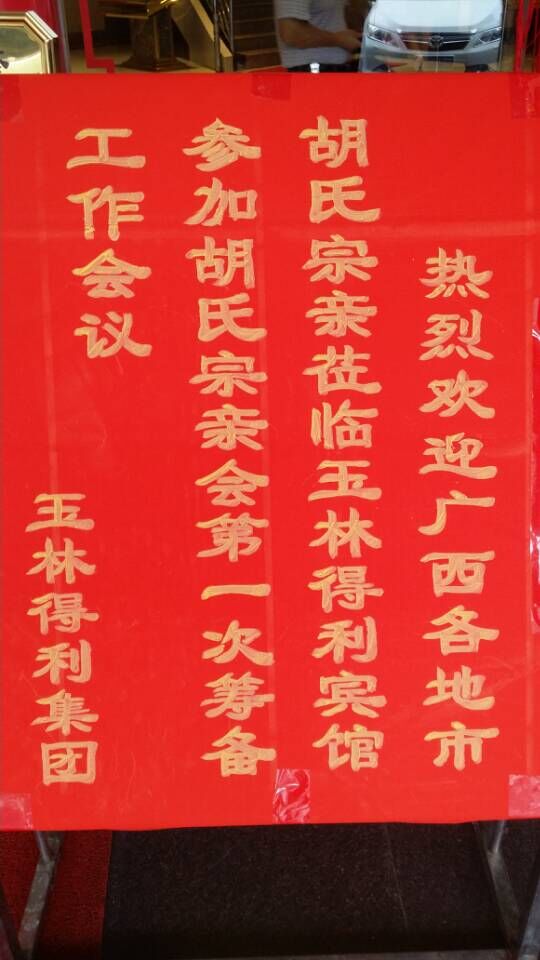 热烈欢迎广西各地市
胡氏宗亲莅临玉林得利宾馆
参加胡氏宗亲会第一次筹备
工作会议
玉林得利集团